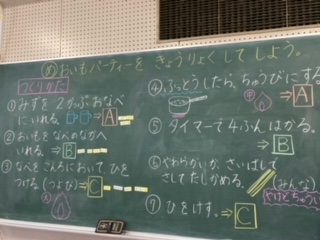 め おいもパーティーを きょうりょくして しよう。
つくりかた
①みずを 2カップおなべ
にいれる。⇒A
②おいもをなべのなかへ
いれる。⇒B
③なべをこんろにおいて、ひを
つける(つよび)⇒C
A
④ふっとうしたら、ちゅうびにする
中
⇒A
⑤タイマーで4ふんはかる。
⇒B
⑥やわらかいか、さいばしで
さしてたしかめる。
(みんな)
やけどちゅうい
⑦ひをけす。⇒C